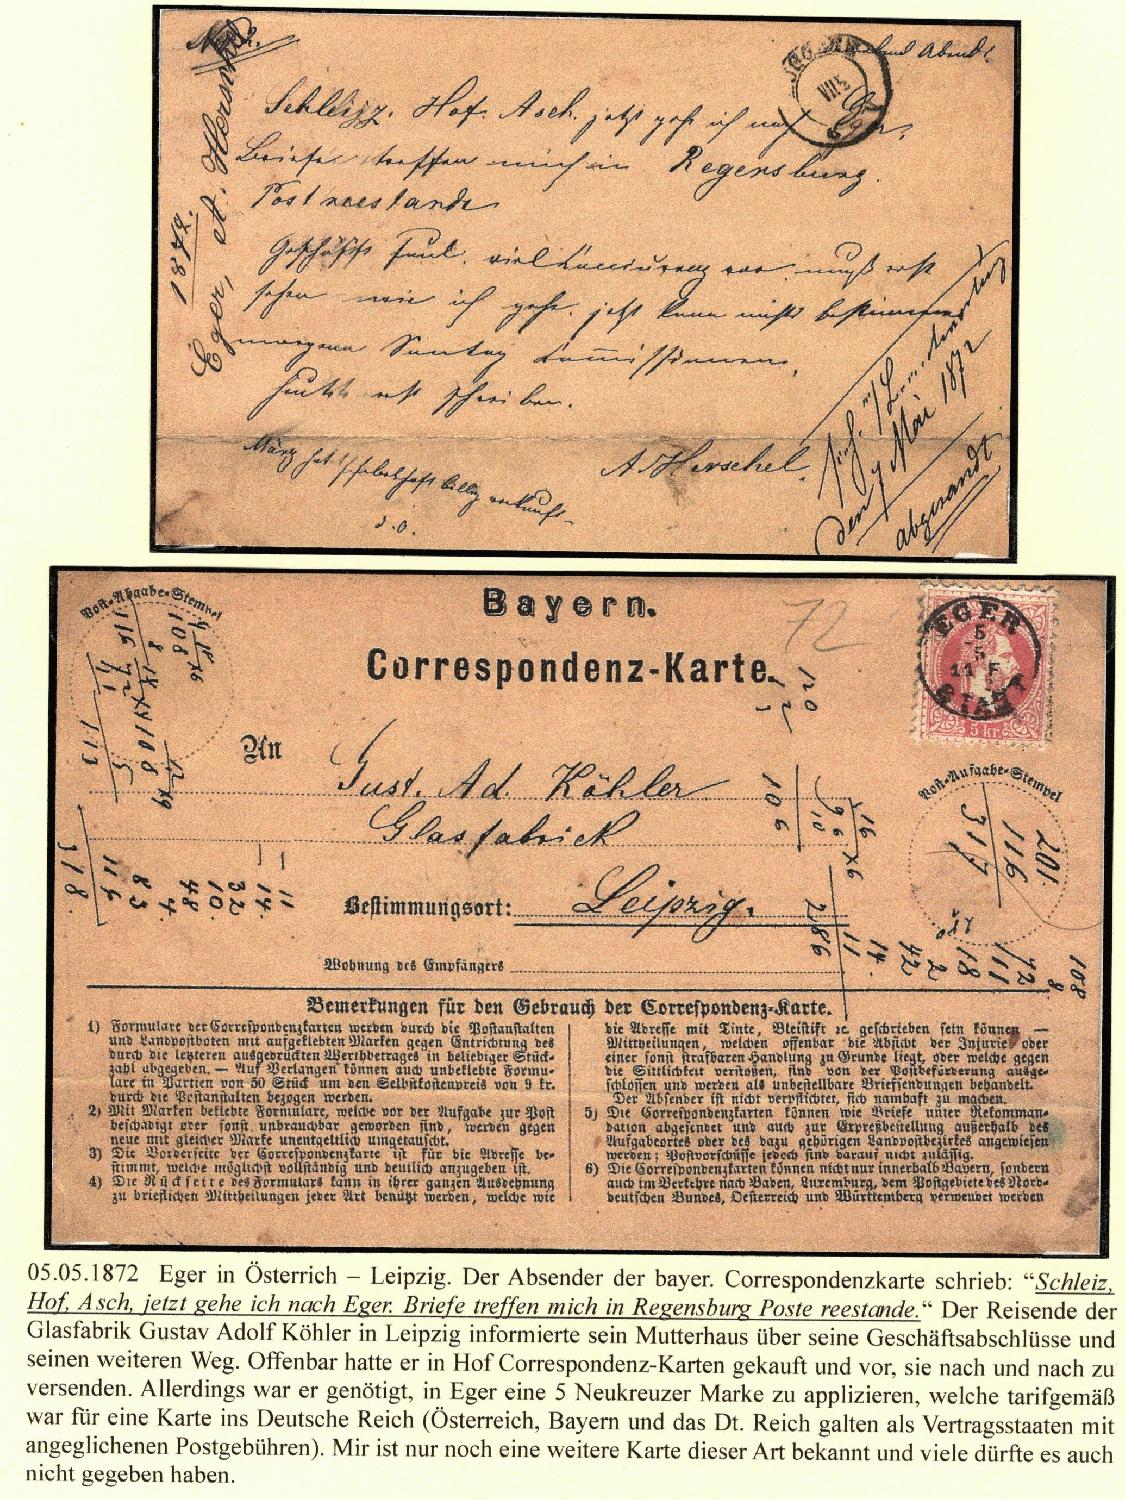 1872.
Eger, A. Herschel
Abend
Schleizz, Hof. Asch. jetzt gehe ich nach Eger.
Briefe treffen mich in Regensburg.
Post reestande
Geschäfft Faul, viel vor. muß erst
sehen wie ich gehe. jetzt kann nichts bestimmen
morgen Sontag
heute erst schreiben.
A. Herschel
d. o.
den 7 Mai 1872
abgesandt
VII 5
Bayern.
72
Correspondenz-Karte.
Post-Abgabe-Stempel
EGER
5
5
11 F
STADT
5 kr.
An
Gust. Ad. Köhler
Glasfabrick
Bestimmungsort: Leipzig.
Wohnung des Empfängers
Post-Aufgabe-Stempel
116
113
318
116
83
4.
48
10.
32
14.
11
120
106
286
11
14.
42
2
18
111
72
108
8
201.
116
317
Bemerkungen für den Gebrauch der Correspondenz-Karte.
1) Formulare der Correspondenzkarten werden durch die Postanstalten
und Landpostboten mit aufgeklebten Marken gegen Entrichtung des
durch die letzteren ausgedruckten Werthbetrages in beliebiger Stück-
zahl abgegeben. — Auf Verlangen können auch unbeklebte Formu-
lare in Partien von 50 Stück um den Selbstkostenpreis von 9 kr.
durch die Postanstalten bezogen werden.
2) Mit Marken beklebte Formulare, welche vor der Aufgabe zur Post
beschädigt oder sonst unbrauchbar geworden sind, werden gegen
neue mit gleicher Marke unentgeltlich umgetauscht.
3) Die Vorderseite der Correspondenzkarte ist für die Adresse be-
stimmt, welche möglichst vollständig und deutlich anzugeben ist.
4) Die Rückseite des Formulars kann in ihrer ganzen Ausdehnung
zu brieflichen Mittheilungen jeder Art benützt werden, welche wie
die Adresse mit Tinte, Bleistift ꝛc. geschrieben sein können —
Mittheilungen, welchen offenbar die Absicht der Injurie oder
einer sonst strafbaren Handlung zu Grunde liegt, oder welche gegen
die Sittlichkeit verstoßen, sind von der Postbeförderung ausge-
schlossen und werden als unbestellbare Briefsendungen behandelt.
Der Absender ist nicht verpflichtet, sich namhaft zu machen.
5) Die Correspondenzkarten können wie Briefe unter Rekomman-
dation abgesendet und auch zur Expreßbestellung außerhalb des
Aufgabeortes oder des dazu gehörigen Landpostbezirkes angewiesen
werden; Postvorschüsse jedoch sind darauf nicht zulässig.
6) Die Correspondenzkarten können nicht nur innerhalb Bayern, sondern
auch im Verkehre nach Baden, Luxemburg, dem Postgebiete des Nord-
deutschen Bundes, Oesterreich und Württemberg verwendet werden
05.05.1872 Eger in Österrich – Leipzig. Der Absender der bayer. Correspondenzkarte schrieb: “Schleiz,
Hof, Asch, jetzt gehe ich nach Eger. Briefe treffen mich in Regensburg Poste reestande.“ Der Reisende der
Glasfabrik Gustav Adolf Köhler in Leipzig informierte sein Mutterhaus über seine Geschäftsabschlüsse und
seinen weiteren Weg. Offenbar hatte er in Hof Correspondenz-Karten gekauft und vor, sie nach und nach zu
versenden. Allerdings war er genötigt, in Eger eine 5 Neukreuzer Marke zu applizieren, welche tarifgemäß
war für eine Karte ins Deutsche Reich (Österreich, Bayern und das Dt. Reich galten als Vertragsstaaten mit
angeglichenen Postgebühren). Mir ist nur noch eine weitere Karte dieser Art bekannt und viele dürfte es auch
nicht gegeben haben.